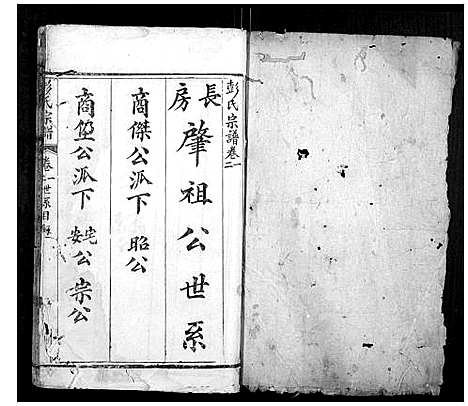 彭氏宗譜卷二
長房肇祖公世系
商傑公派下 昭公
商堡公派下 宅公 安公 崇公
彭氏宗譜 卷二 世系目錄